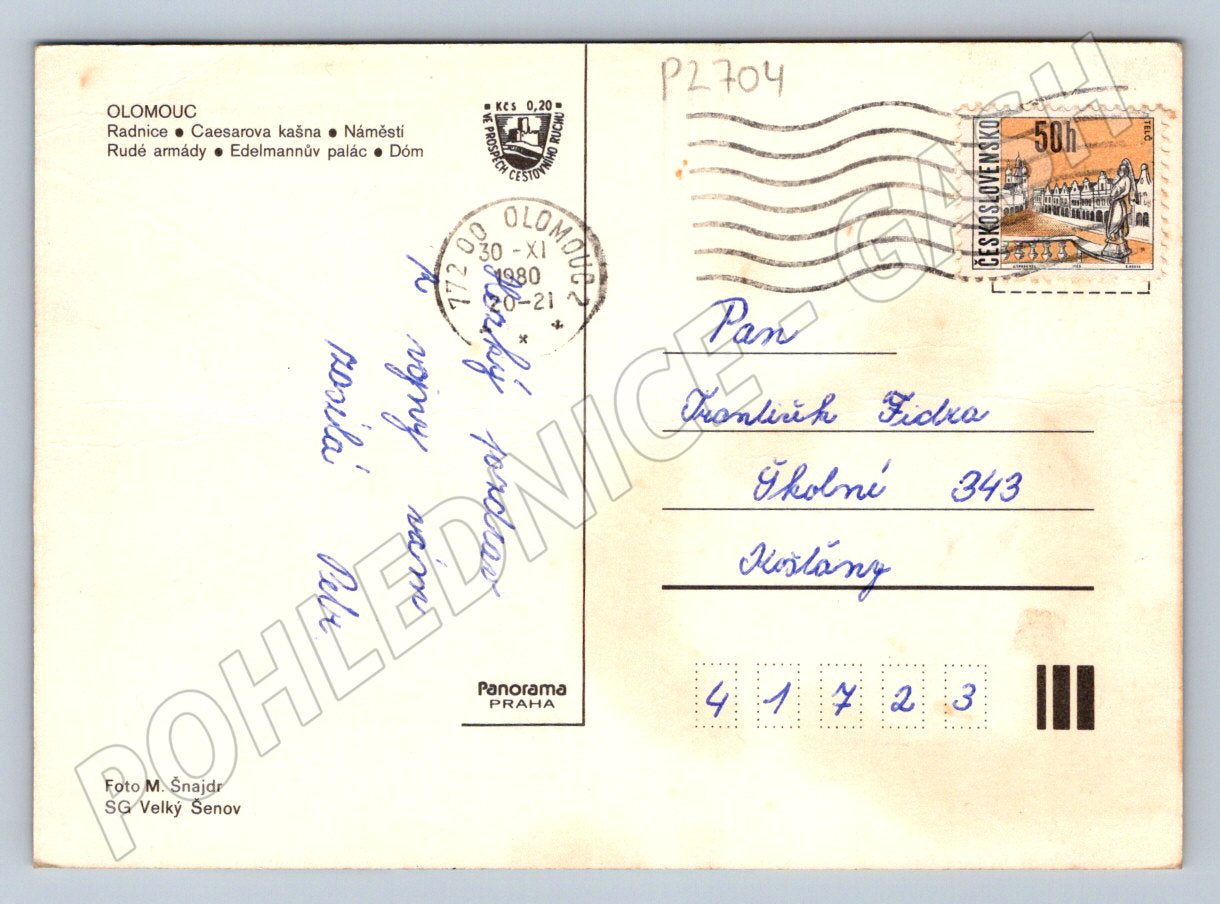 OLOMOUC
Radnice ● Caesarova kašna ● Náměstí
Rudé armády ● Edelmannův palác ● Dóm
Kčs 0,20
VE PROSPĚCH CESTOVNÍHO RUCHU
772 00 OLOMOUC 2
30 -XI
1980
20-21
Hezký pozdrav
z vojny vám
posílá Petr
Panorama
PRAHA
Foto M. Šnajdr
SG Velký Šenov
P2704
ČESKOSLOVENSKO
50h
TELČ
Pan
František Fidra
Školní 343
Košťany
41723
POHLEDNICE - GASH